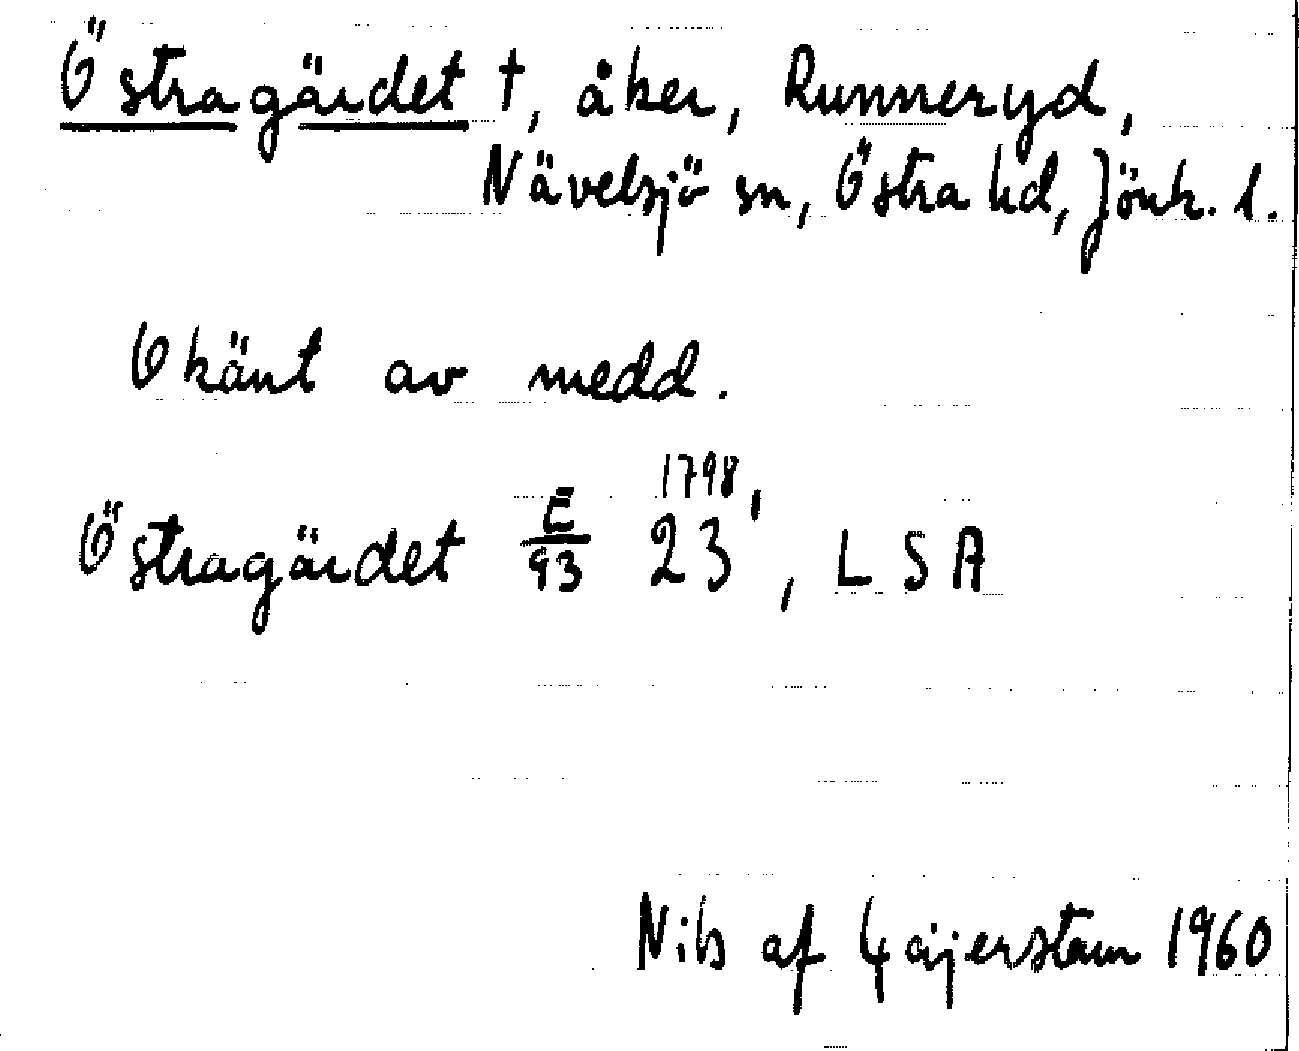 Östragärdet †, åker, Runneryd,
Nävelsjö sn, Östra hd, Jönk. l.
Okänt av medd.
Östragärdet E/93 23 1798, LSA
Nils af Geijerstam 1960